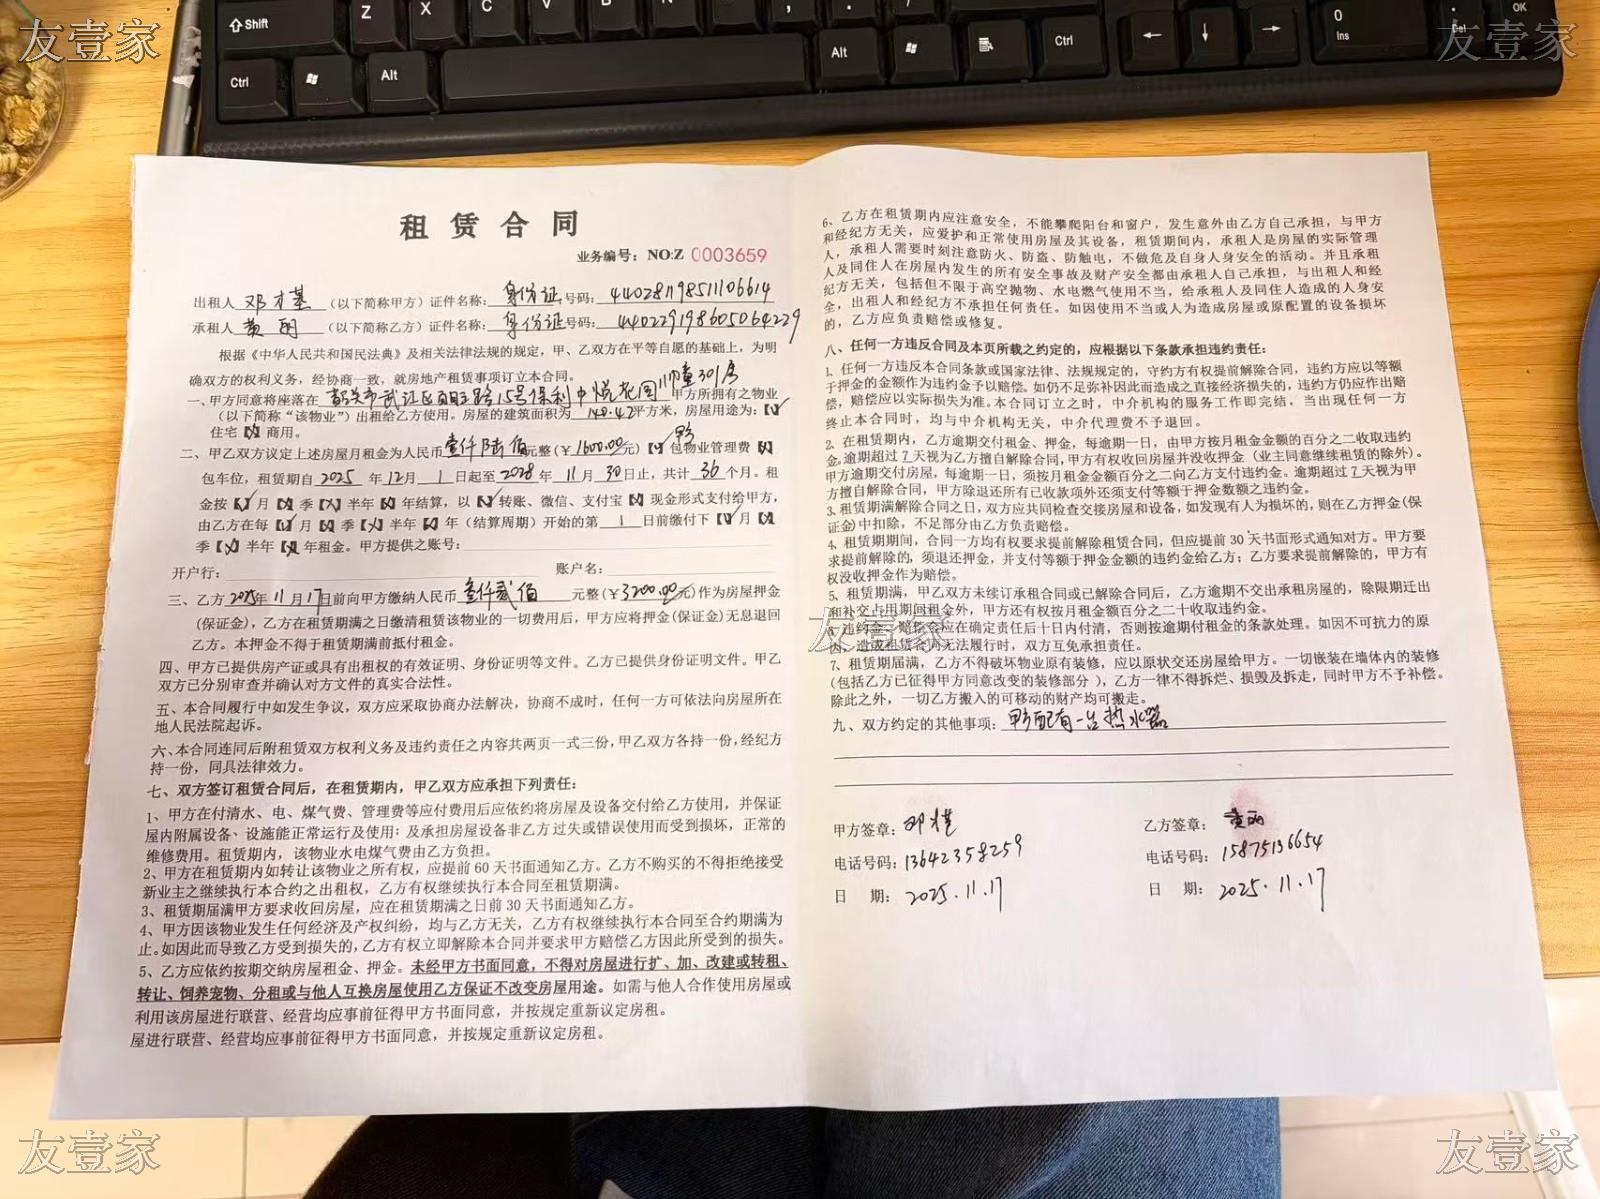 友壹家
友壹家
Shift Z X C V B
Alt Ctrl 0 Ins Del OK
Ctrl Alt
租赁合同
业务编号：NO:Z 0003659
出租人 邓才基 （以下简称甲方）证件名称：身份证 号码：440281198511106614
承租人 黄丽 （以下简称乙方）证件名称：身份证 号码：440229198605064229
根据《中华人民共和国民法典》及相关法律法规的规定，甲、乙双方在平等自愿的基础上，为明
确双方的权利义务，经协商一致，就房地产租赁事项订立本合同。
一、甲方同意将座落在 韶关市武江区 路15号保利中悦花园 幢301房 甲方所拥有之物业
（以下简称“该物业”）出租给乙方使用。房屋的建筑面积为 140.42 平方米，房屋用途为：【√】
住宅【X】商用。
二、甲乙双方议定上述房屋月租金为人民币 壹仟陆佰 元整(￥1600.00元)【√】包物业管理费【X】
包车位，租赁期自 2025 年 12 月 1 日起至 2028 年 11 月 30 日止，共计 36 个月。租
金按【√】月【X】季【X】半年【X】年结算，以【√】转账、微信、支付宝【X】现金形式支付给甲方，
由乙方在每【√】月【X】季【X】半年【X】年（结算周期）开始的第 1 日前缴付下【√】月【X】
季【X】半年【X】年租金。甲方提供之账号：
开户行： 账户名：
三、乙方 2025年 11 月 17 日前向甲方缴纳人民币 叁仟贰佰 元整(￥3200.00元)作为房屋押金
(保证金)，乙方在租赁期满之日缴清租赁该物业的一切费用后，甲方应将押金(保证金)无息退回
乙方。本押金不得于租赁期满前抵付租金。
四、甲方已提供房产证或具有出租权的有效证明、身份证明等文件。乙方已提供身份证明文件。甲乙
双方已分别审查并确认对方文件的真实合法性。
五、本合同履行中如发生争议，双方应采取协商办法解决，协商不成时，任何一方可依法向房屋所在
地人民法院起诉。
六、本合同连同后附租赁双方权利义务及违约责任之内容共两页一式三份，甲乙双方各持一份，经纪方
持一份，同具法律效力。
七、双方签订租赁合同后，在租赁期内，甲乙双方应承担下列责任：
1、甲方在付清水、电、煤气费、管理费等应付费用后应依约将房屋及设备交付给乙方使用，并保证
屋内附属设备、设施能正常运行及使用；及承担房屋设备非乙方过失或错误使用而受到损坏，正常的
维修费用。租赁期内，该物业水电煤气费由乙方负担。
2、甲方在租赁期内如转让该物业之所有权，应提前 60 天书面通知乙方。乙方不购买的不得拒绝接受
新业主之继续执行本合约之出租权，乙方有权继续执行本合同至租赁期满。
3、租赁期届满甲方要求收回房屋，应在租赁期满之日前 30 天书面通知乙方。
4、甲方因该物业发生任何经济及产权纠纷，均与乙方无关，乙方有权继续执行本合同至合约期满为
止。如因此而导致乙方受到损失的，乙方有权立即解除本合同并要求甲方赔偿乙方因此所受到的损失。
5、乙方应依约按期交纳房屋租金、押金。未经甲方书面同意，不得对房屋进行扩、加、改建或转租、
转让、饲养宠物、分租或与他人互换房屋使用乙方保证不改变房屋用途。如需与他人合作使用房屋或
利用该房屋进行联营、经营均应事前征得甲方书面同意，并按规定重新议定房租。
屋进行联营、经营均应事前征得甲方书面同意，并按规定重新议定房租。
6、乙方在租赁期内应注意安全，不能攀爬阳台和窗户，发生意外由乙方自己承担，与甲方
和经纪方无关，应爱护和正常使用房屋及其设备，租赁期间内，承租人是房屋的实际管理
人，承租人需要时刻注意防火、防盗、防触电，不做危及自身人身安全的活动。并且承租
人及同住人在房屋内发生的所有安全事故及财产安全都由承租人自己承担，与出租人和经
纪方无关，包括但不限于高空抛物、水电燃气使用不当，给承租人及同住人造成的人身安
全，出租人和经纪方不承担任何责任。如因使用不当或人为造成房屋或原配置的设备损坏
的，乙方应负责赔偿或修复。
八、任何一方违反合同及本页所载之约定的，应根据以下条款承担违约责任：
1、任何一方违反本合同条款或国家法律、法规规定的，守约方有权提前解除合同，违约方应以等额
于押金的金额作为违约金予以赔偿。如仍不足弥补因此而造成之直接经济损失的，违约方仍应作出赔
偿，赔偿应以实际损失为准。本合同订立之时，中介机构的服务工作即完结，当出现任何一方
终止本合同时，均与中介机构无关，中介代理费不予退回。
2、在租赁期内，乙方逾期交付租金、押金，每逾期一日，由甲方按月租金金额的百分之二收取违约
金。逾期超过 7 天视为乙方擅自解除合同，甲方有权收回房屋并没收押金（业主同意继续租赁的除外）。
甲方逾期交付房屋，每逾期一日，须按月租金金额百分之二向乙方支付违约金。逾期超过 7 天视为甲
方擅自解除合同，甲方除退还所有已收款项外还须支付等额于押金数额之违约金。
3、租赁期满解除合同之日，双方应共同检查交接房屋和设备，如发现有人为损坏的，则在乙方押金(保
证金)中扣除，不足部分由乙方负责赔偿。
4、租赁期期间，合同一方均有权要求提前解除租赁合同，但应提前 30 天书面形式通知对方。甲方要
求提前解除的，须退还押金，并支付等额于押金金额的违约金给乙方；乙方要求提前解除的，甲方有
权没收押金作为赔偿。
5、租赁期满，甲乙双方未续订承租合同或已解除合同后，乙方逾期不交出承租房屋的，除限期迁出
和补交占用期间租金外，甲方还有权按月租金额百分之二十收取违约金。
违约金、赔偿金应在确定责任后十日内付清，否则按逾期付租金的条款处理。如因不可抗力的原
因，造成租赁合同无法履行时，双方互免承担责任。
7、租赁期届满，乙方不得破坏物业原有装修，应以原状交还房屋给甲方。一切嵌装在墙体内的装修
(包括乙方已征得甲方同意改变的装修部分)，乙方一律不得拆烂、损毁及拆走，同时甲方不予补偿。
除此之外，一切乙方搬入的可移动的财产均可搬走。
九、双方约定的其他事项：甲方配有一台热水器
甲方签章：邓才基
电话号码：13642358259
日 期：2025.11.17
乙方签章：黄丽
电话号码：15875136654
日 期：2025.11.17
友壹家
友壹家
友壹家